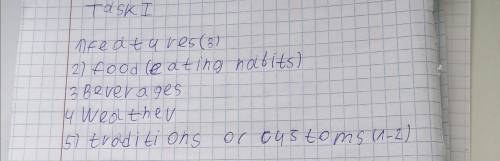 Task I
1) features(3)
2) food (eating habits)
3 Beverages
4 Weather
5) traditions or customs (1-2)